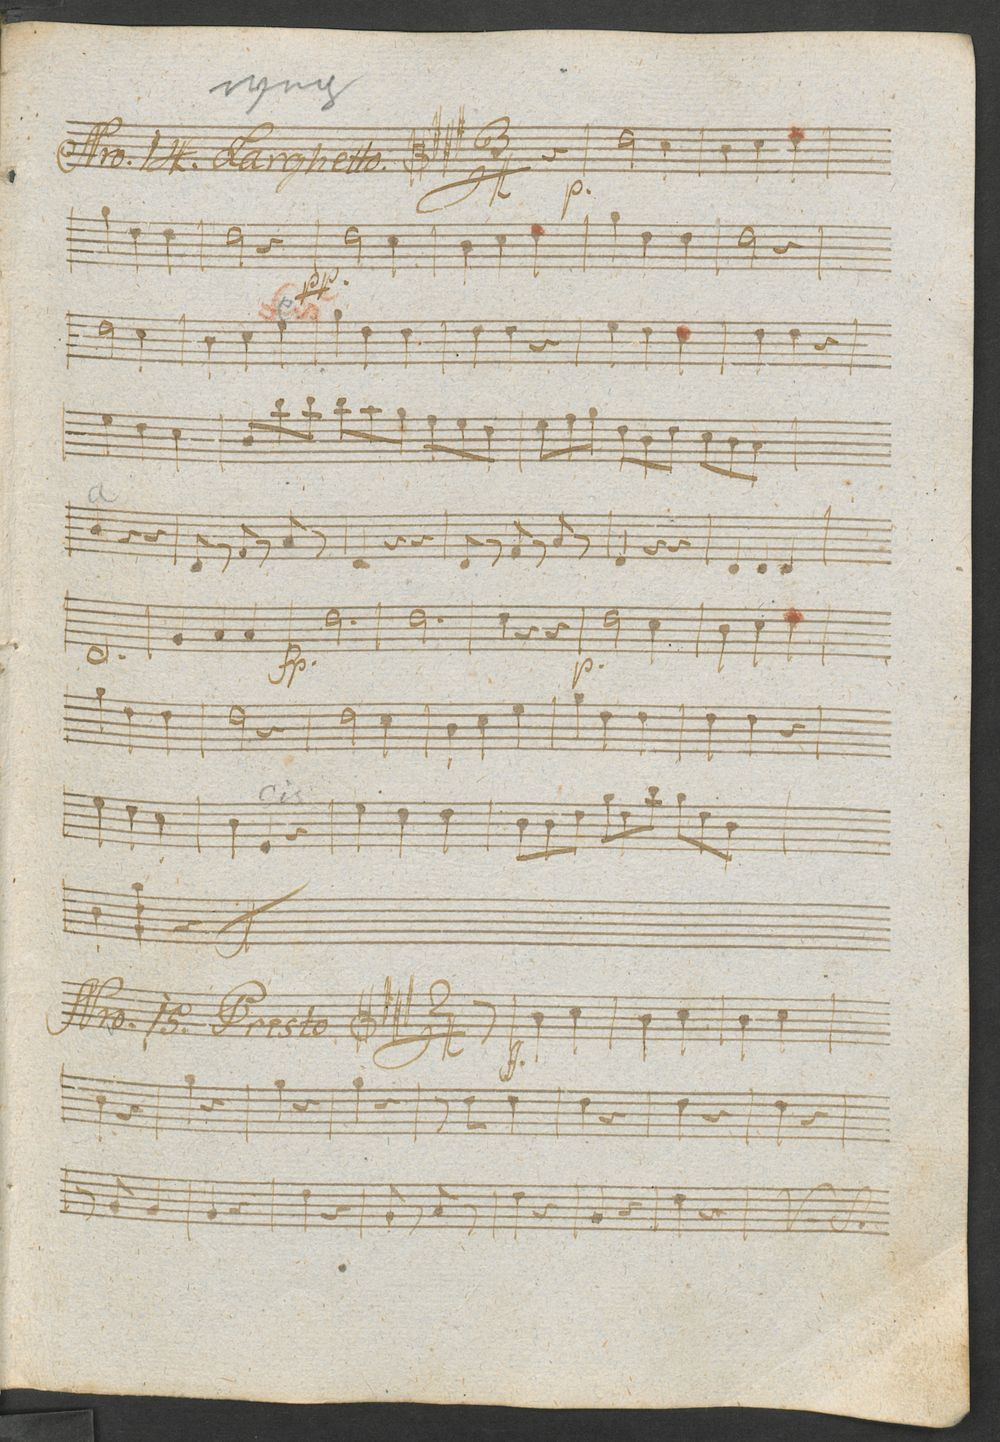 Nro. 14. Larghetto. 3/4 p.
pp.
a
fp. p.
cis
Nro. 15. Presto 2/4 f.
V. S.